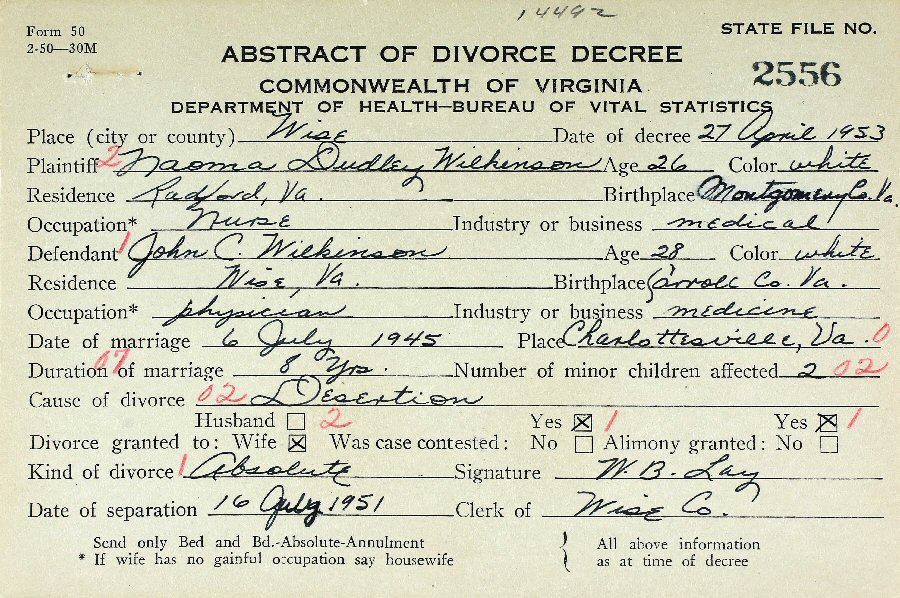 14492
Form 50
2-50—30M
STATE FILE NO.
2556
ABSTRACT OF DIVORCE DECREE
COMMONWEALTH OF VIRGINIA
DEPARTMENT OF HEALTH—BUREAU OF VITAL STATISTICS
Place (city or county) Wise Date of decree 27 April 1953
Plaintiff 2 Naoma Dudley Wilkinson Age 26 Color white
Residence Radford, Va. Birthplace Montgomery Co. Va.
Occupation* Nurse Industry or business medical
Defendant 1 John C. Wilkinson Age 28 Color white
Residence Wise, Va. Birthplace Carroll Co. Va.
Occupation* physician Industry or business medicine
Date of marriage 6 July 1945 Place Charlottesville, Va. 0
Duration of marriage 07 8 Yrs. Number of minor children affected 2 02
Cause of divorce 02 Desertion
Husband ☐ 2 Yes ☒ 1 Yes ☒ 1
Divorce granted to: Wife ☒ Was case contested: No ☐ Alimony granted: No ☐
Kind of divorce 1 Absolute Signature W. B. Lay
Date of separation 16 July 1951 Clerk of Wise Co.
Send only Bed and Bd.-Absolute-Annulment
* If wife has no gainful occupation say housewife
All above information
as at time of decree